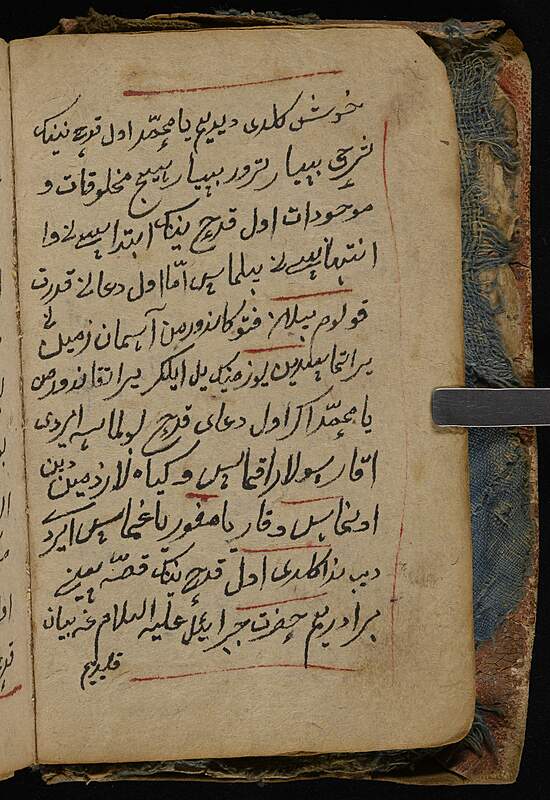 خوش کلدی دیدیم یا محمّد اول قدح نینک
شرحی بسیار ترور بسیار هیچ مخلوقات و
موجودات اول قدح نینک ابتداسی نی وا
انتهاسی نی بیلماس امّا اول دعا نی قدرت
قولوم بیلان فتوکاندورمن آسمان زمین نی
یراتماسدین یوز مینک یل ایلکر یراتقاندورمن
یا محمّد اکر اول دعای قدح لولماسه ایردی
اقار سولار اقماس و کیاه لار زمین دین
اونماس و قار یامغور یاغماس ایردی
دیب ندا کلدی اول قدح نینک قصّه سین
برادریم حضرت جبرائیل علیه السلام غه بیان
قلدیم